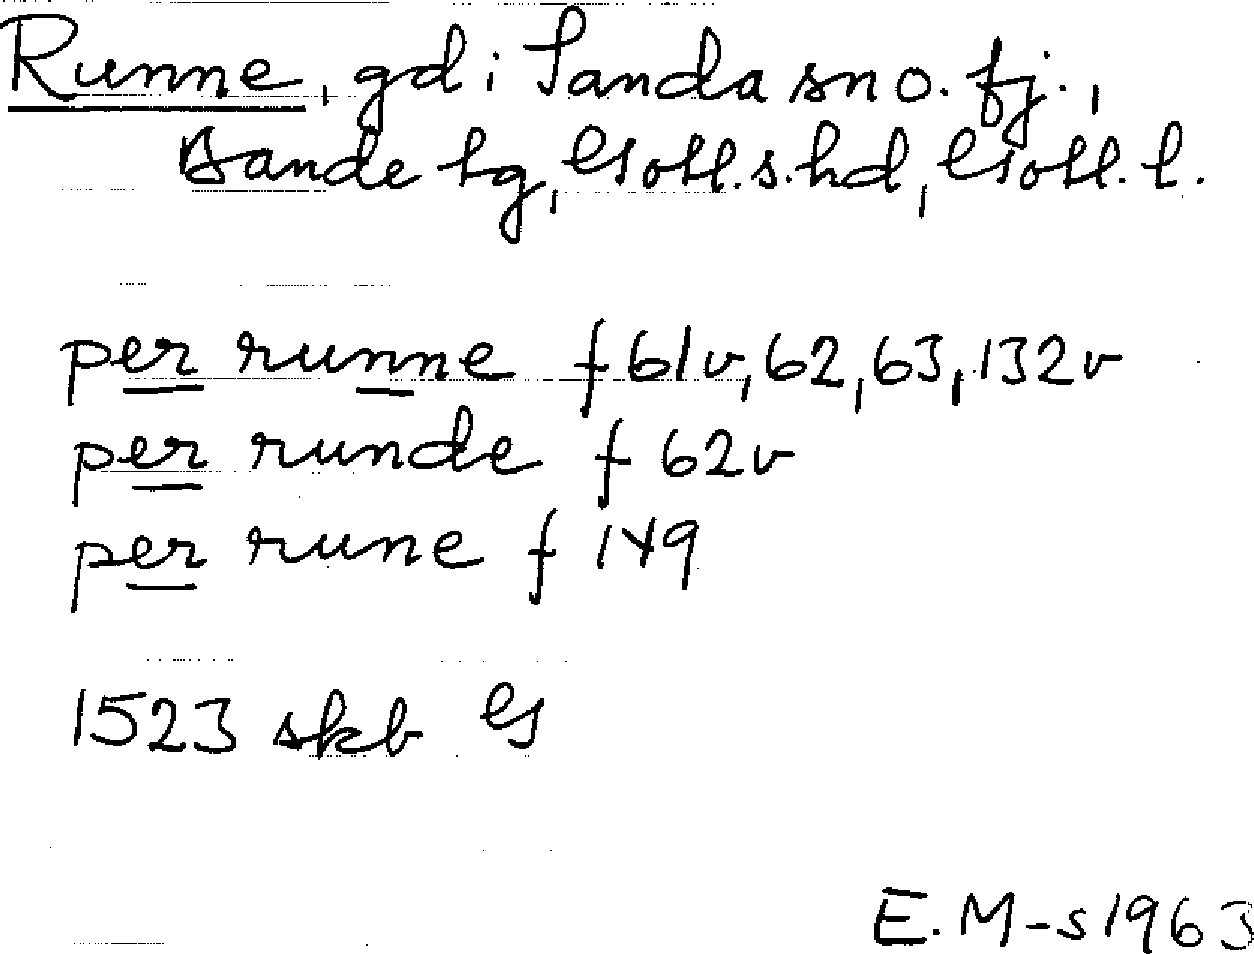 Runne, gd i Sanda sn o. fj.,
Bande tg, Gotl. s. hd, Gotl. l.
per runne f 61v, 62, 63, 132v
per runde f 62v
per rune f 149
1523 skb G
E. M-s 1963